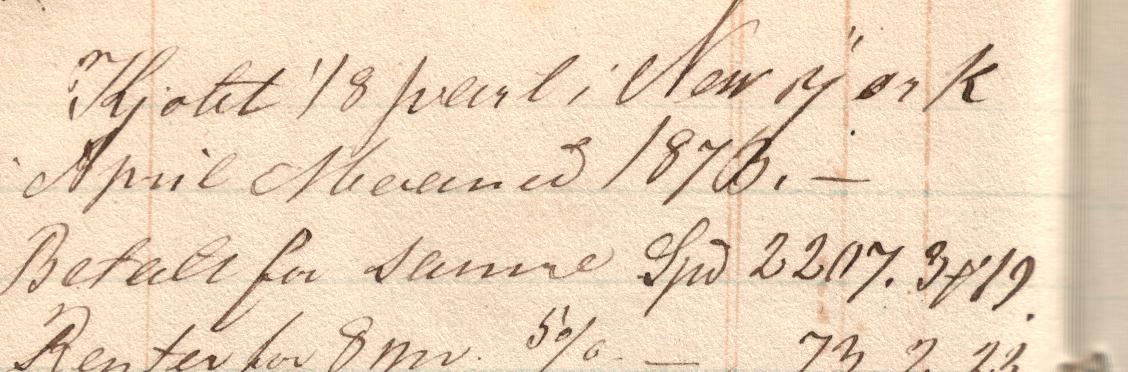 Kjøbt 1/8 part i New york
April Maaned 1873. —
Betalt for samme Spd 2207. 3 # 19.
Renter for 8 mr. 5% — 73. 2. 23